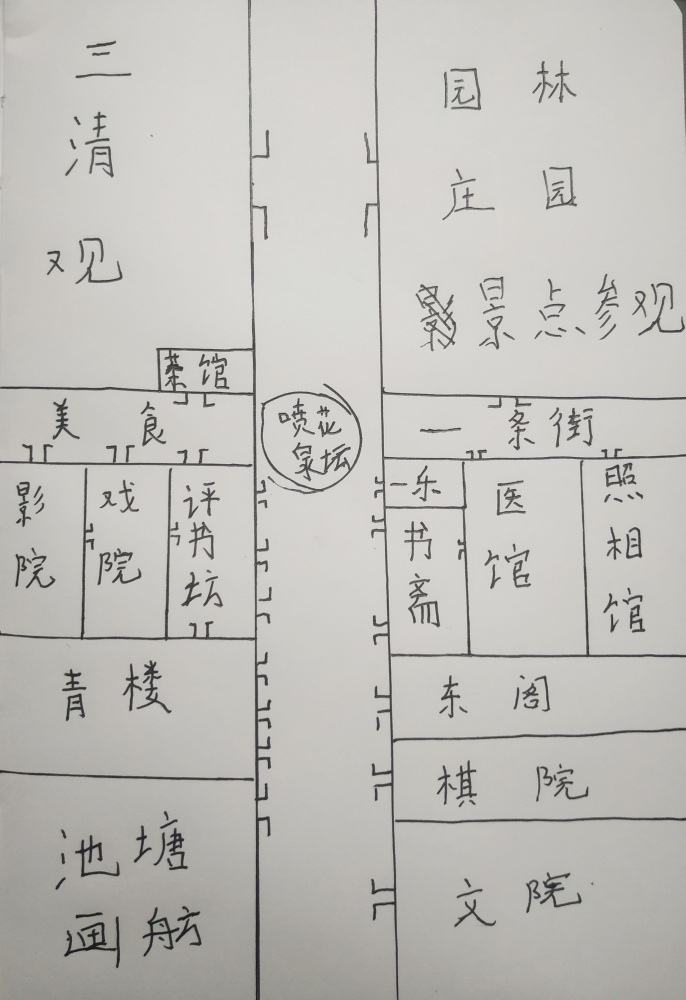 三清观
园林
庄园
景点参观
菜馆
美食一条街
喷泉花坛
影院
戏院
评书坊
一乐
书斋
医馆
照相馆
青楼
东阁
棋院
池塘
画舫
文院